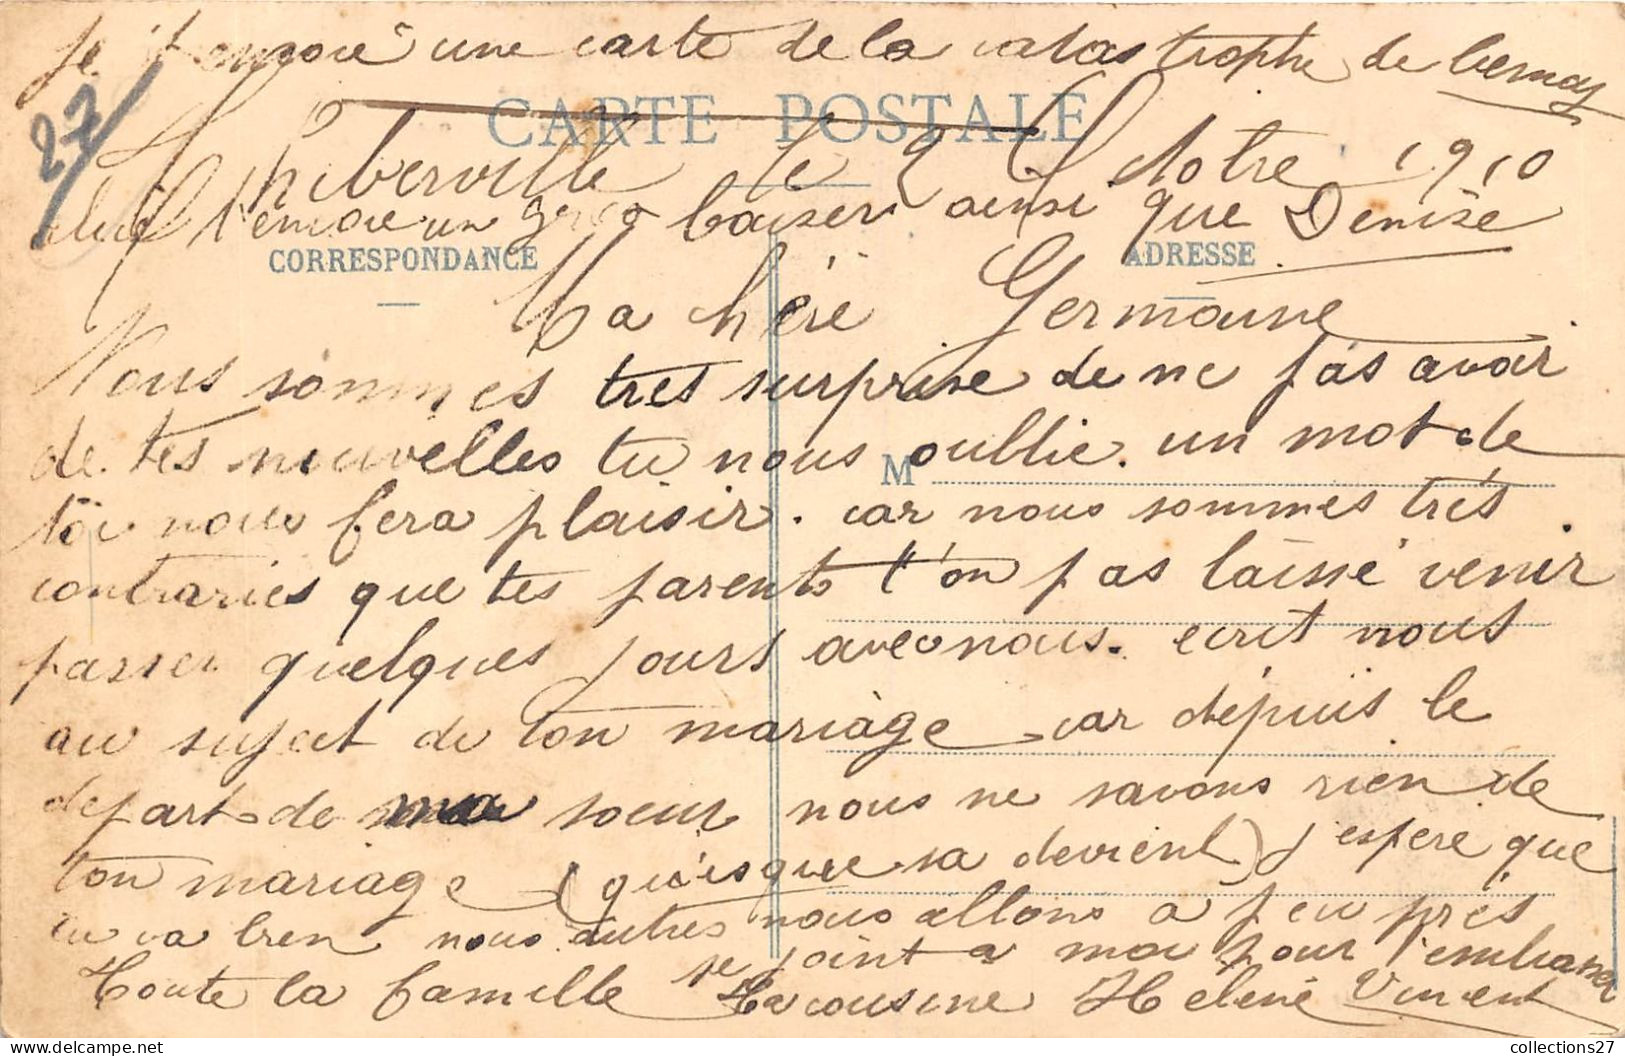 Je t'envoie une carte de la catastrophe de Bernay
27
CARTE POSTALE
Thiberville le 9 Octobre 1910
t'envoie un gros baiser ainsi que Denise
CORRESPONDANCE
ADRESSE
Ma chère Germaine
Nous sommes très surprise de ne pas avoir
de tes nouvelles tu nous oublie. un mot de
M
toi nous fera plaisir. car nous sommes très
contraries que tes parents t'on pas laissé venir
passer quelques jours avec nous. ecrit nous
au suject de ton mariage car dépuis le
depart de ma soeur nous ne savons rien de
ton mariage (qu'esque sa devient) j'espere que
tu va bien nous autres nous allons a peu près
Toute la famille se joint a moi pour t'embrasser
Ta cousine Hélène Vincent
collections27